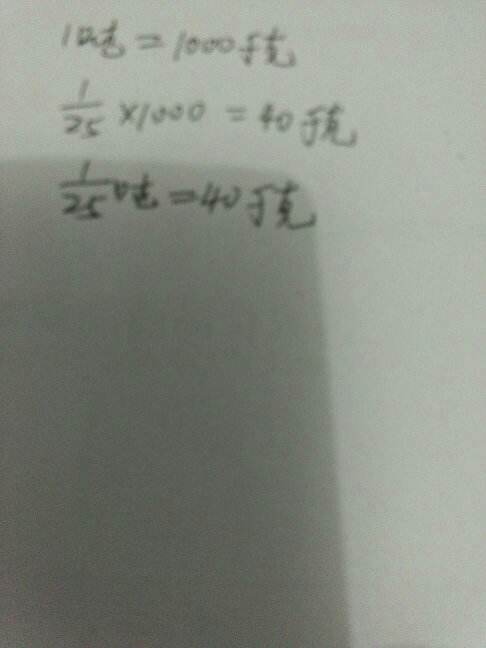 1吨=1000千克
1/25×1000=40千克
1/25吨=40千克